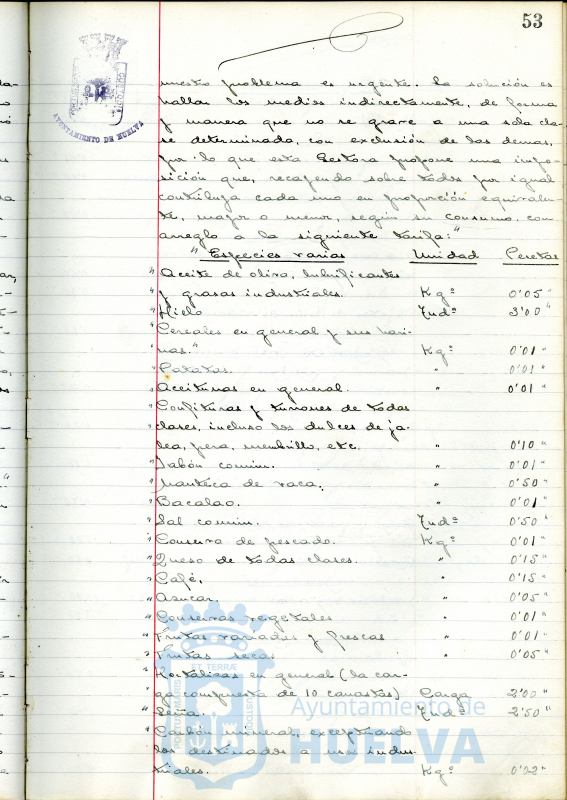 53
AYUNTAMIENTO DE HUELVA
nuestro problema es urgente. La solución es
hallar los medios indirectamente, de forma
y manera que no se grave a una sola cla-
se determinada, con exclusión de las demas,
por lo que esta Gestora propone una impo-
sición que, recayendo sobre todos por igual
contribuya cada uno en proporción equivalen-
te, mayor o menor, según su consumo, con
arreglo a la siguiente tarifa:"
" Especies varias Unidad Pesetas
" Aceite de oliva, lubrificantes
y grasas industriales. Kgº 0'05 "
" Hielo Indª 3'00 "
" Cereales en general y sus hari-
nas." Kgº 0'01 "
" Patatas. " 0'01 "
" Aceitunas en general. " 0'01 "
" Confituras y turrones de todas
" clases, incluso los dulces de ja-
" lea, pera, membrillo, etc. " 0'10 "
" Jabón comun. " 0'01 "
" Manteca de vaca. " 0'50 "
" Bacalao. " 0'01 "
" Sal comun. Indª 0'50 "
" Conserva de pescado. Kgº 0'01 "
" Queso de todas clases. " 0'15 "
" Café. " 0'15 "
" Azucar. " 0'05 "
" Conservas vegetales " 0'01 "
" Frutas variadas y frescas " 0'01 "
" Frutas secas " 0'05 "
" Hortalizas en general (la car-
" ga compuesta de 10 canastos) Carga 2'00 "
" Leña. Indª 2'50 "
" Carbón mineral, exceptuando
" los destinados a usos indus-
triales. Kgº 0'02 "
Ayuntamiento de
HUELVA